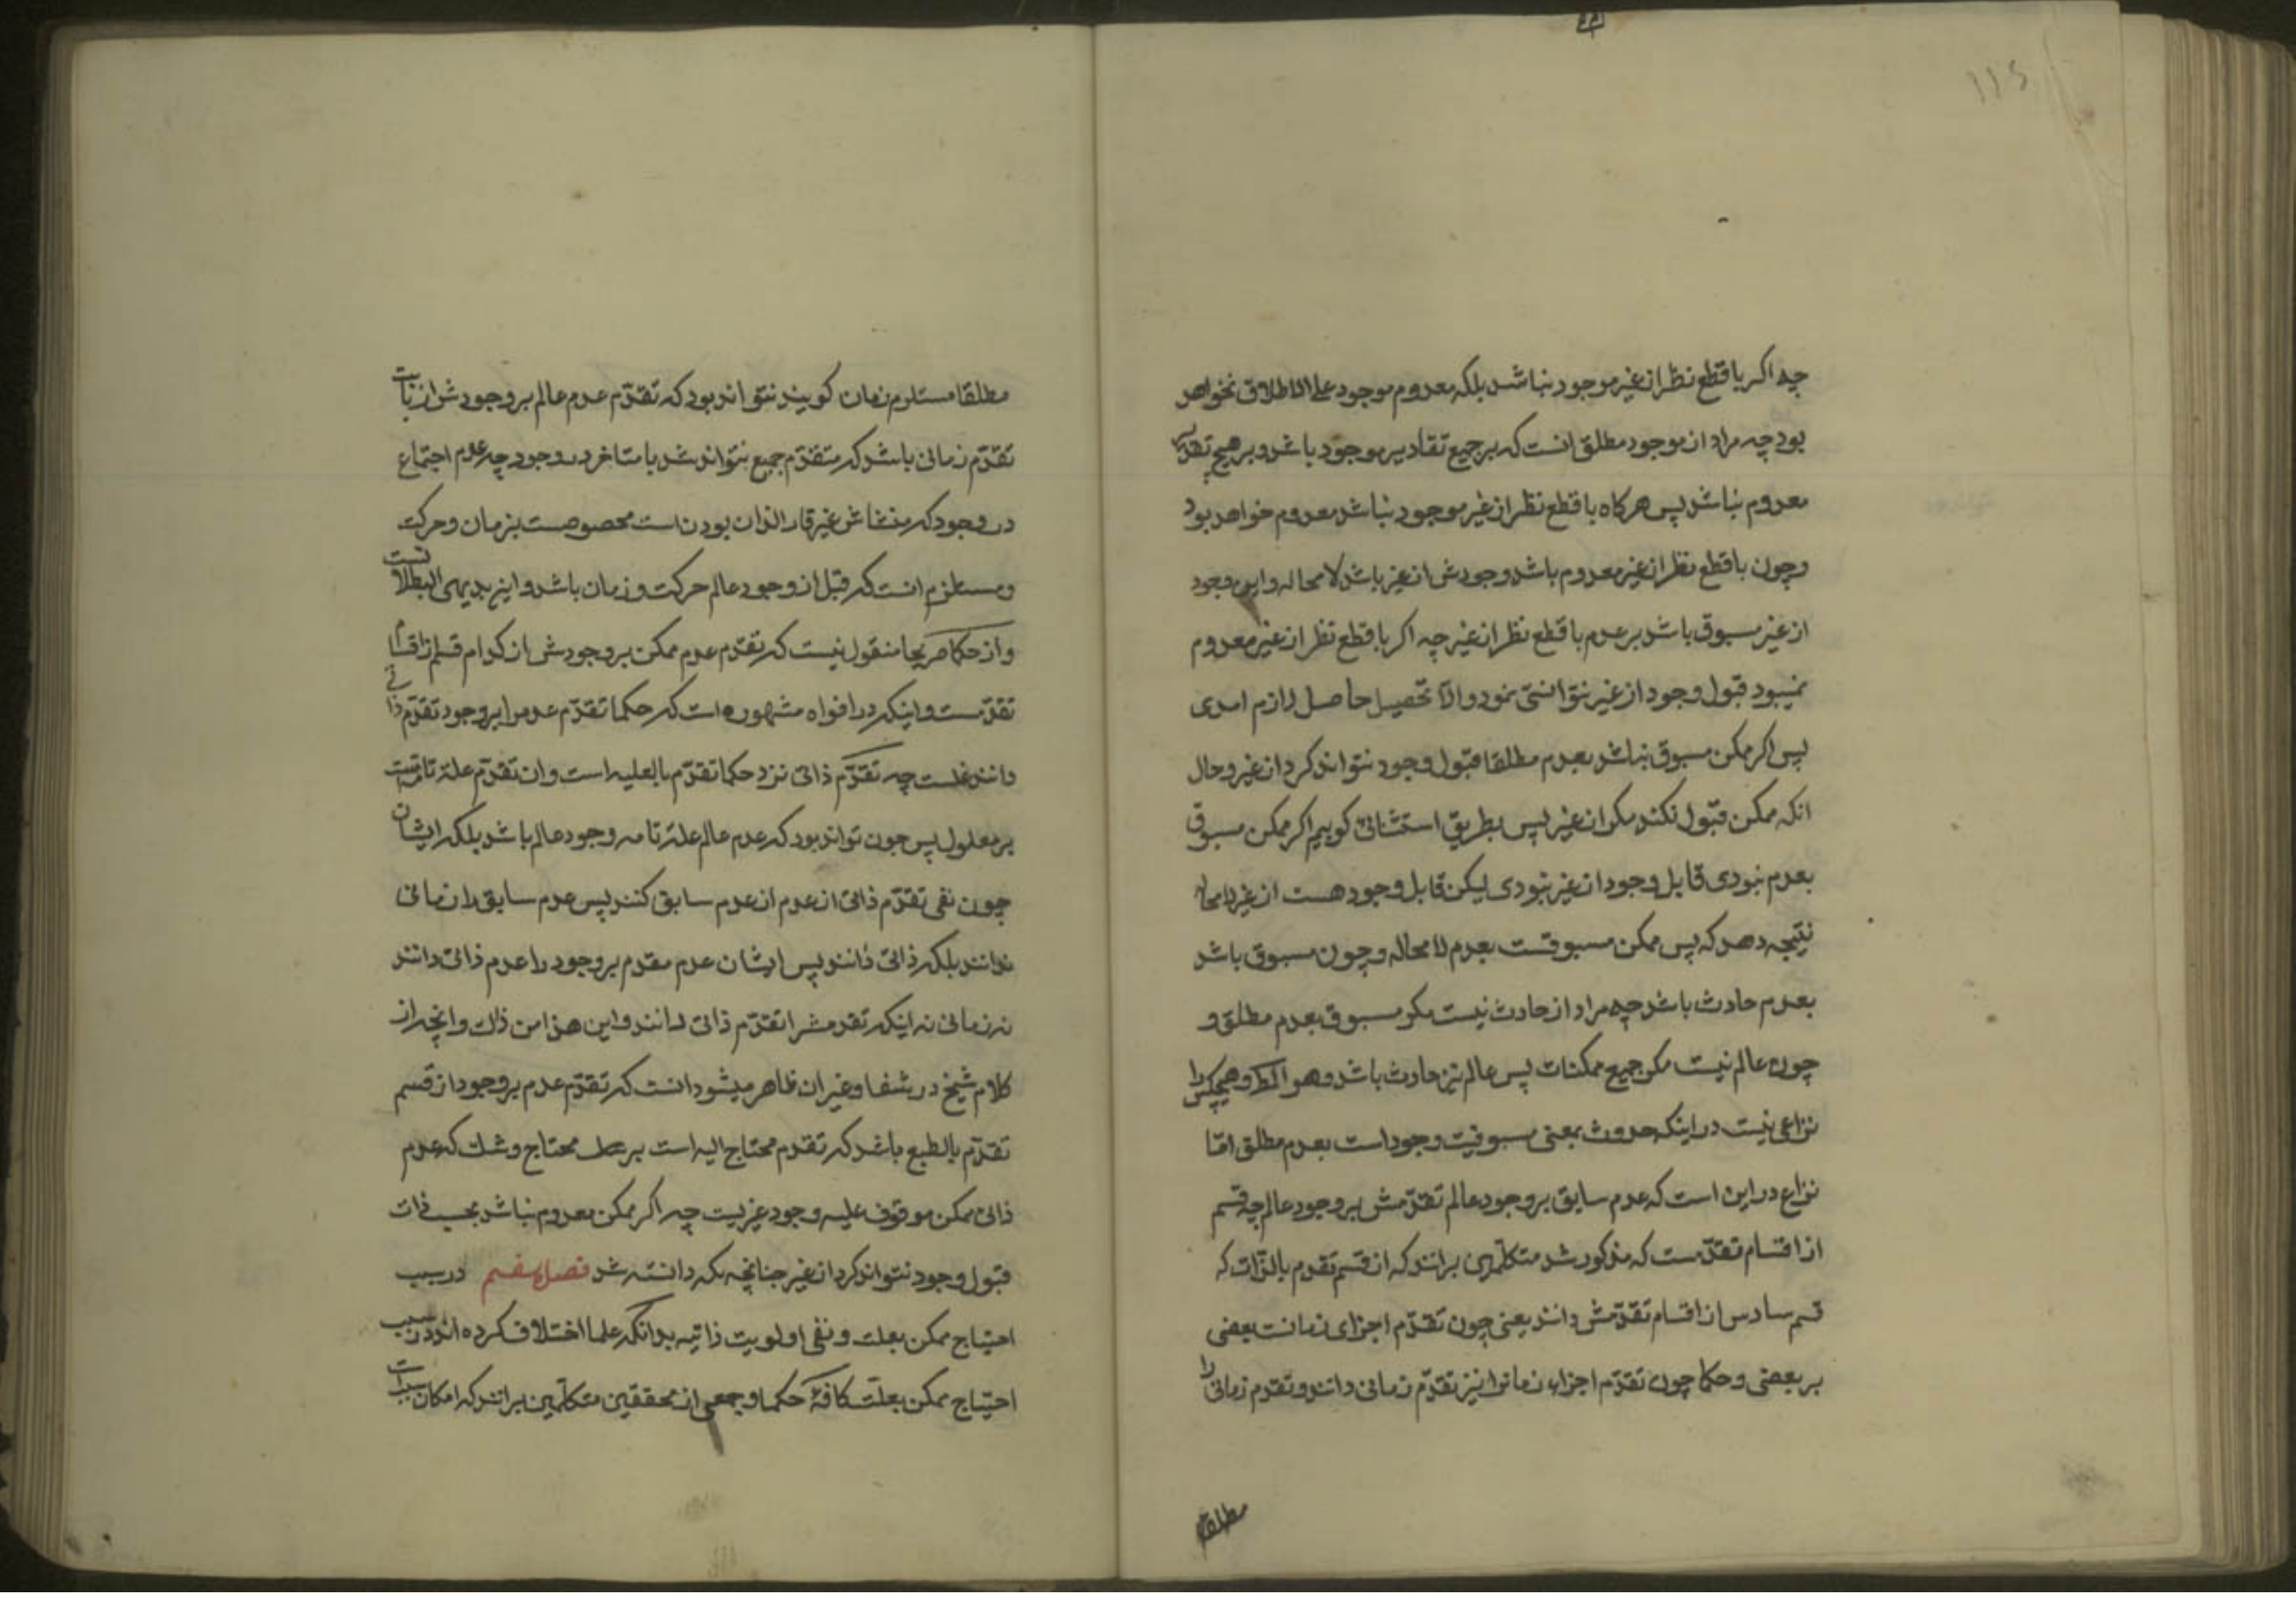 ۱۱۶
چه اکر با قطع نظر از غیر موجود نباشد بلکه معدوم موجود علی الاطلاق نخواهد
بود چه مراد از موجود مطلق انست که بر جمیع تقادیر موجود باشد و بر هیچ تقدیر
معدوم نباشد پس هرکاه با قطع نظر از غیر موجود نباشد معدوم خواهد بود
و چون با قطع نظر از غیر معدوم باشد وجودش از غیر باشد لا محاله و این وجود
از غیر مسبوق باشد بر عدم با قطع نظر از غیر چه اکر با قطع نظر از غیر معدوم
نمیبود قبول وجود از غیر نتوانستی نمود والا تحصیل حاصل لازم امدی
پس اکر ممکن مسبوق نباشد بعدم مطلقا قبول وجود نتواند کرد از غیر و حال
انکه ممکن قبول نکند مکر از غیر پس بطریق استثنائی کوییم اکر ممکن مسبوق
بعدم نبودی قابل وجود از غیر نبودی لیکن قابل وجود هست از غیر لا محاله
نتیجه دهد که پس ممکن مسبوقست بعدم لا محاله و چون مسبوق باشد
بعدم حادث باشد چه مراد از حادث نیست مکر مسبوق بعدم مطلق و
چون عالم نیست مکر جمیع ممکنات پس عالم نیز حادث باشد و هو المط و هیچکس را
نزاعی نیست در اینکه حدوث بمعنی مسبوقیت وجود است بعدم مطلق امّا
نزاع در این است که عدم سابق بر وجود عالم تقدّمش بر وجود عالم چه قسم
از اقسام تقدّمست که مذکور شد متکلّمین برانند که از قسم تقدم بالذّات که
قسم سادس از اقسام تقدّمش دانند یعنی چون تقدّم اجزای زمانست بعضی
بر بعضی و حکما چون تقدّم اجزاء زمانرا نیز تقدّم زمانی دانند و تقدم زمانی را
مطلقا
مطلقا مستلزم زمان کویند نتواند بود که تقدّم عدم عالم بر وجودش از
تقدّم زمانی باشد که متقدّم جمیع نتواند شد با متاخر در وجود چه عدم اجتماع
در وجود که منشاش غیر قار الذات بودن است مخصوصست بزمان و حرکت
و مستلزم انست که قبل از وجود عالم حرکت و زمان باشد و این بدیهی البطلانست
و از حکما صریحا منقول نیست که تقدّم عدم ممکن بر وجودش از کدام قسم از اقسام
تقدّمست و اینکه در افواه مشهوره است که حکما تقدّم عدم را بر وجود تقدّم ذاتی
دانند غلست چه تقدّم ذاتی نزد حکما تقدّم بالعلیه است و ان تقدّم علة تامه است
بر معلول پس چون تواند بود که عدم عالم علة تامه وجود عالم باشد بلکه ایشان
چون نفی تقدّم ذاتی از عدم از عدم سابق کنند پس عدم سابق را زمانی
ندانند بلکه ذاتی دانند پس ایشان عدم مقدم بر وجود را عدم ذاتی دانند
نه زمانی نه اینکه تقدمش را تقدّم ذاتی دانند و این هذا من ذاك و انچه از
کلام شیخ در شفا و غیر ان ظاهر میشود انست که تقدّم عدم بر وجود از قسم
تقدّم بالطبع باشد که تقدم محتاج الیه است بر محتاج و شك که عدم
ذاتی ممکن موقوف علیه وجود غیریست چه اکر ممکن معدوم نباشد بحسب ذات
قبول وجود نتواند کرد از غیر چنانچه مکه دانسته شد فصل هفتم در سبب
احتیاج ممکن بعلت و نفی اولویت ذاتیه بدانکه علما اختلاف کرده اند در سبب
احتیاج ممکن بعلّت کافّهٔ حکما و جمعی از محققین متکلّمین برانند که امکان سبب است